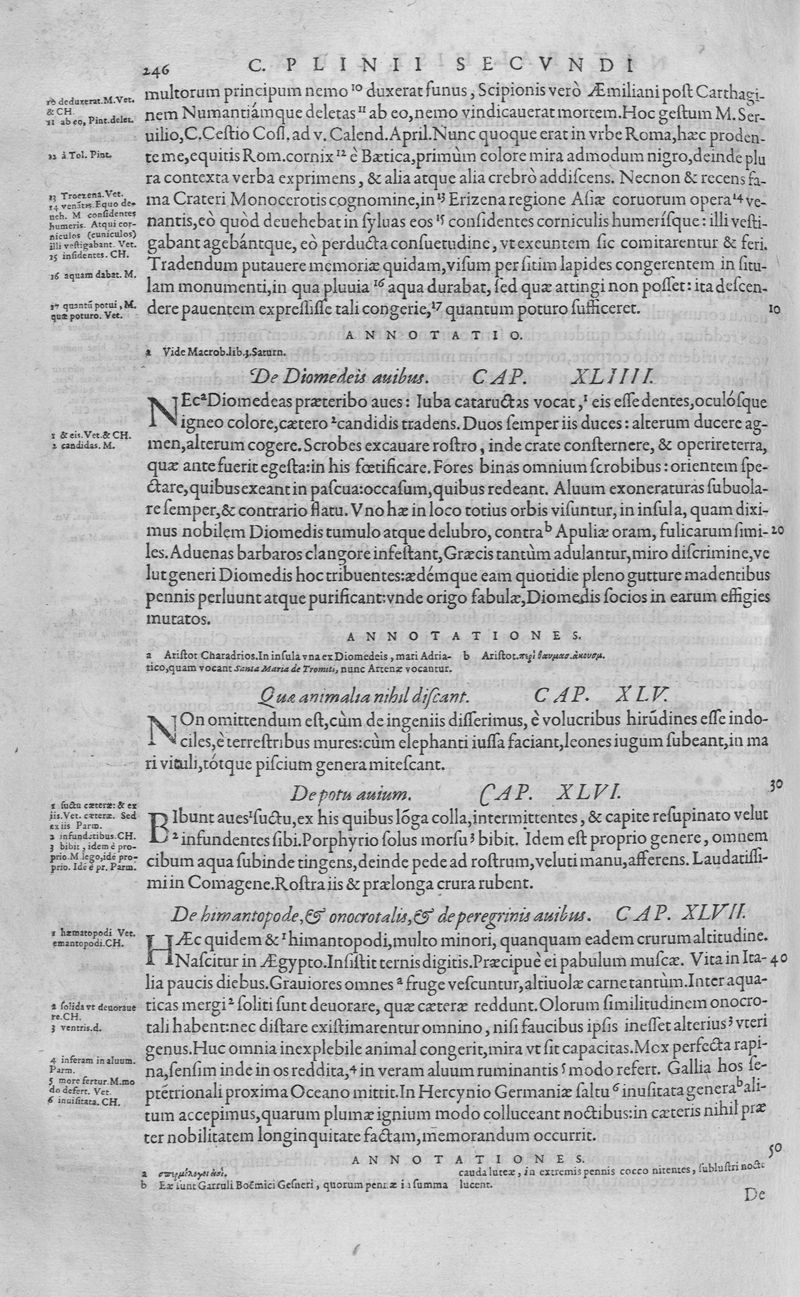 246 C. PLINII SECVNDI
multorum principum nemo ¹⁰ duxerat funus, Scipionis verò Æmiliani post Carthagi-
nem Numantiámque deletas ¹¹ ab eo, nemo vindicauerat mortem. Hoc gestum M. Ser-
uilio, C. Cestio Coss. ad v. Calend. April. Nunc quoque erat in vrbe Roma, hæc proden-
te me, equitis Rom. cornix ¹² è Bætica, primùm colore mira admodum nigro, deinde plu
ra contexta verba exprimens, & alia atque alia crebrò addiscens. Necnon & recens fa-
ma Crateri Monocerotis cognomine, in ¹³ Erizena regione Asiæ coruorum opera ¹⁴ ve-
nantis, eò quòd deuehebat in syluas eos ¹⁵ considentes corniculis humerísque: illi vesti-
gabant agebántque, eò perducta consuetudine, vt exeuntem sic comitarentur & feri.
Tradendum putauere memoriæ quidam, visum per sitim lapides congerentem in situ-
lam monumenti, in qua pluuia ¹⁶ aqua durabat, sed quæ attingi non posset: ita descen-
dere pauentem expressisse tali congerie, ¹⁷ quantum poturo sufficeret. 10
10 deduxerat. M. Vet.
& CH.
11 ab eo, Pint. delet.
12 à Tol. Pint.
13 Troezena. Vet.
14 venātis. Equo de-
ueh. M considentes
humeris. Atqui cor-
niculos (cuniculos)
illi vestigabant. Vet.
15 insidentes. CH.
16 aquam dabat. M.
17 quantū potui, M.
quæ poturo. Vet.
ANNOTATIO.
a Vide Macrob. lib. 3. Saturn.
De Diomedeis auibus. CAP. XLIIII.
NEc ᵃ Diomedeas præteribo aues: Iuba cataructas vocat, ¹ eis esse dentes, oculósque
igneo colore, cætero ² candidis tradens. Duos semper iis duces: alterum ducere ag-
men, alterum cogere. Scrobes excauare rostro, inde crate consternere, & operire terra,
quæ ante fuerit egesta: in his fœtificare. Fores binas omnium scrobibus: orientem spe-
ctare, quibus exeant in pascua: occasum, quibus redeant. Aluum exoneraturas subuola-
re semper, & contrario flatu. Vno hæ in loco totius orbis visuntur, in insula, quam dixi-
mus nobilem Diomedis tumulo atque delubro, contra ᵇ Apuliæ oram, fulicarum simi- 20
les. Aduenas barbaros clangore infestant, Græcis tantùm adulantur, miro discrimine, ve
lut generi Diomedis hoc tribuentes: ædémque eam quotidie pleno gutture madentibus
pennis perluunt atque purificant: vnde origo fabulæ, Diomedis socios in earum effigies
mutatos.
1 & eis. Vet. & CH.
2 candidas. M.
ANNOTATIONES.
a Aristot Charadrios. In insula vna ex Diomedeis, mari Adria-
tico, quam vocant Santa Maria de Tromiti, nunc Artenæ vocantur.
b Aristot. περὶ θαυμασ. ἀκουσμ.
Quæ animalia nihil discant. CAP. XLV.
NOn omittendum est, cùm de ingeniis disserimus, è volucribus hirūdines esse indo-
ciles, è terrestribus mures: cùm elephanti iussa faciant, leones iugum subeant, in ma
ri vituli, tótque piscium genera mitescant.
De potu auium. CAP. XLVI. 30
BIbunt aues ¹ suctu, ex his quibus lōga colla, intermittentes, & capite resupinato velut
² infundentes sibi. Porphyrio solus morsu ³ bibit. Idem est proprio genere, omnem
cibum aqua subinde tingens, deinde pede ad rostrum, veluti manu, afferens. Laudatissi-
mi in Comagene. Rostra iis & prælonga crura rubent.
1 suctu cæteræ: & ex
iis. Vet. cæteræ. Sed
ex iis Parm.
2 infundatibus. CH.
3 bibit, idem è pro-
prio. M lego, idē pro-
prio. Idē è pr. Parm.
De himantopode, & onocrotalis, & de peregrinis auibus. CAP. XLVII.
HÆc quidem & ¹ himantopodi, multo minori, quanquam eadem crurum altitudine.
Nascitur in Ægypto. Insistit ternis digitis. Præcipuè ei pabulum muscæ. Vita in Ita- 40
lia paucis diebus. Grauiores omnes ᵃ fruge vescuntur, altiuolæ carne tantùm. Inter aqua-
ticas mergi ² soliti sunt deuorare, quæ cæteræ reddunt. Olorum similitudinem onocro-
tali habent: nec distare existimarentur omnino, nisi faucibus ipsis inesset alterius ³ vteri
genus. Huc omnia inexplebile animal congerit, mira vt sit capacitas. Mox perfecta rapi-
na, sensim inde in os reddita, ⁴ in veram aluum ruminantis ⁵ modo refert. Gallia hos se-
ptētrionali proxima Oceano mittit. In Hercynio Germaniæ saltu ⁶ inusitata genera ᵇ ali-
tum accepimus, quarum plumæ ignium modo colluceant noctibus: in cæteris nihil præ
ter nobilitatem longinquitate factam, memorandum occurrit.
1 hæmatopodi Vet.
emantopodi. CH.
2 solida vt deuoraue
re. CH.
3 ventris. d.
4 inferam in aluum.
Parm.
5 more fertur. M. mo
do defert. Vet.
6 inuisitata. CH.
50
ANNOTATIONES.
a σπερμολόγοι
b Ex sunt Garruli Boëmici Gesneri, quorum pennæ in summa
cauda luteæ, in extremis pennis cocco nitentes, sublustri nocte
lucent.
De